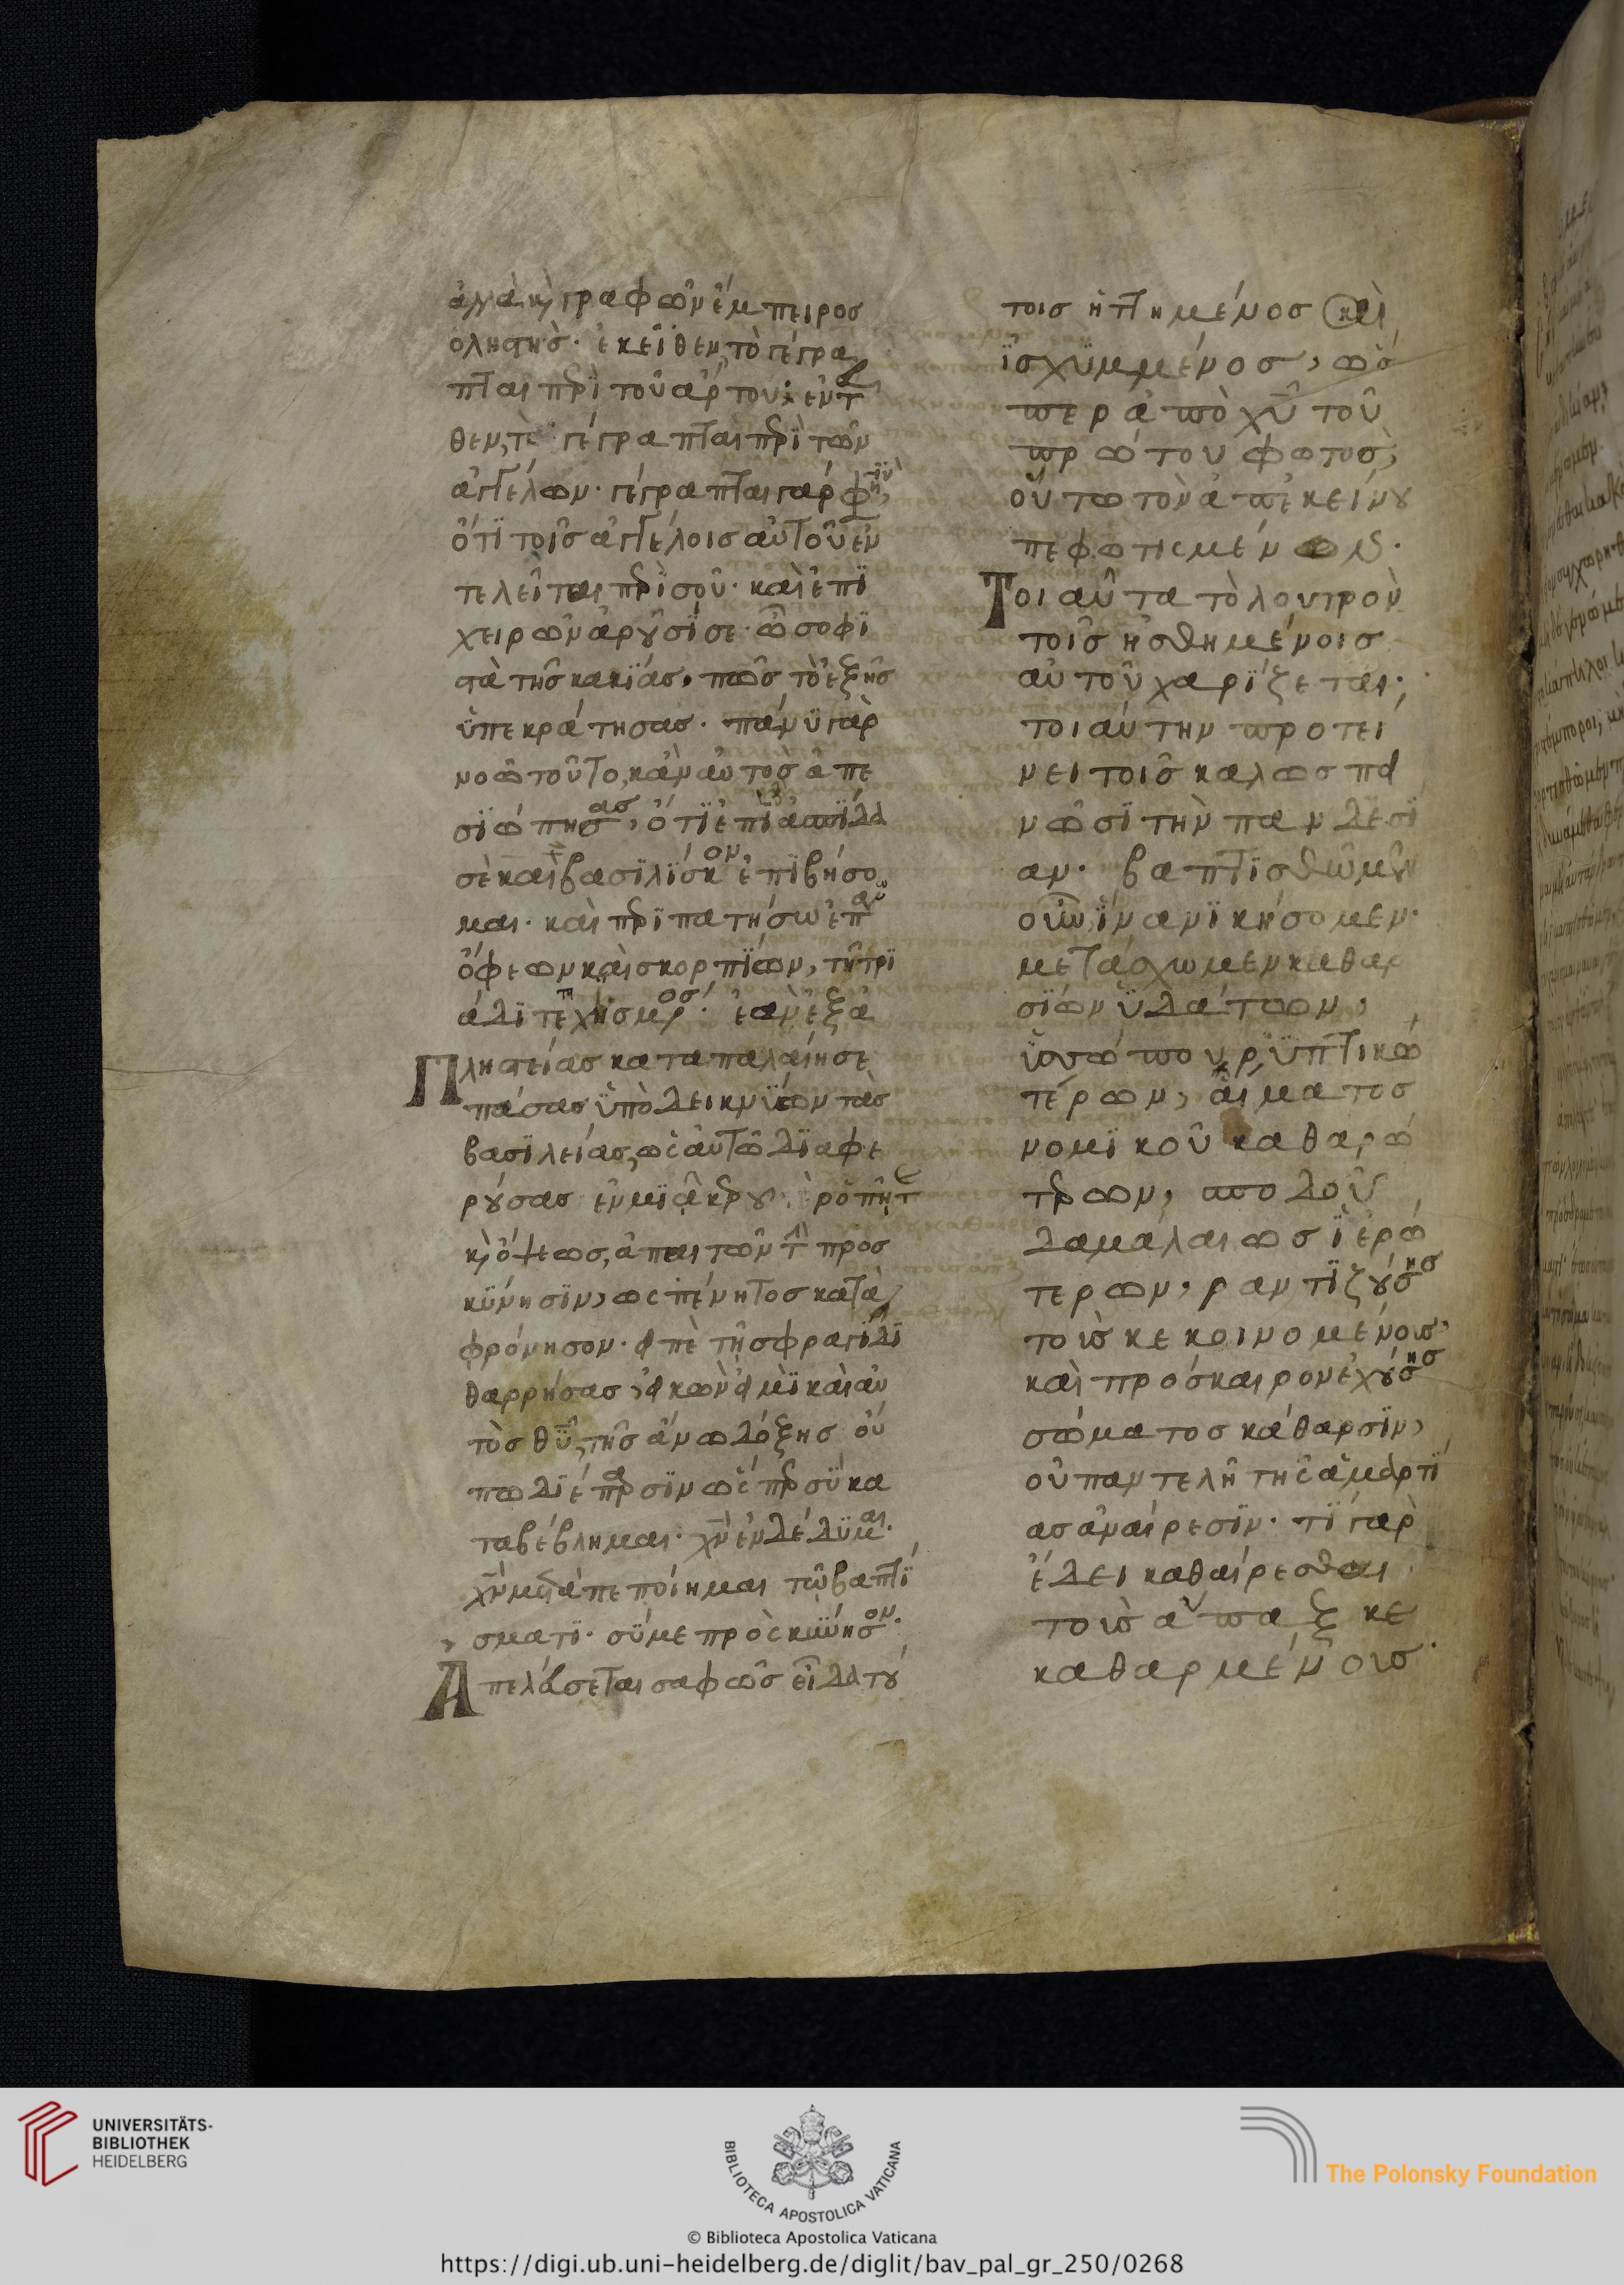 ἀλλὰ κ γραφῶν ἔμπειρος
ὁ ληστής. ἐκεῖθεν τὸ γέγρα
πται περὶ τοῦ ἄρτου·
θεν, γέγραπται περὶ τῶν
ἀγγέλων. γέγραπται γάρ φησὶν,
ὅτι τοῖς ἀγγέλοις αὐτοῦ ἐν
τελεῖται περὶ σοῦ. καὶ ἐπὶ
χειρῶν ἀρȣσί σε. ὦ σοφι
στὰ τῆς κακίας. πῶς τὸ ἑξῆς
ὑπεκράτησας. πάνυ γὰρ
νοῶ τοῦτο, κἂν αὐτὸς ἀπε
σιώπησας, ὅτι ἐπὶ ἀσπίδα
σὲ καὶ βασιλίσκον ἐπιβήσο
μαι. καὶ περιπατήσω ἐπάνω
ὄφεων καὶ σκορπίων, τῆ τρι
άδι τετειχισμένος. ἐὰν ἐξ ἀ
Πληστείας καταπαλαίη σε
πάσας ὑποδεικνύων τὰς
βασιλείας, ὡς αὐτῶ διαφε
ρȣσας ἐν μιᾶ καιρȣ ῥοπῆ
κ ὄψεως, ἀπαιτῶν τ προσ
κύνησιν, ὡς πένητος κατα
φρόνησον. εἰπὲ τῆ σφραγίδι
θαρρήσας, εἰκών εἰμι καὶ αὐ
τὸς θῦ, τῆς ἄνω δόξης οὐ
πω δι' ἔπαρσιν ὡς περ σὺ κα
ταβέβλημαι. χν ἐνδέδυμαι.
χν μεταπεποίημαι τῶ βαπτί
σματι. σύ με προσκύνησον.
Ἀπελεύσεται σαφῶς οἶδα τȣ
τοις ἡττημένος καὶ
ἰσχυμμένος, ὡς
περ ἀπὸ χῦ τοῦ
πρώτου φωτὸς,
οὕτω τὸν ἀπ' ἐκείνȣ
πεφωτισμένων.
Τοιαῦτα τὸ λουτρὸν
τοῖς ἠσθημένοις
αὐτοῦ χαρίζεται,
τοιαύτην προτεί
νει τοῖς καλῶς πει
νῶσι τὴν πανδεσί
αν. βαπτισθῶμεν
οὖν, ἵνα νικήσομεν.
μετάσχωμεν καθαρ
σίων ὑδάτων,
ὑσσώπου ῥυπτικω
τέρων, αἵματος
νομικοῦ καθαρω
τέρων, σποδοῦ
δαμάλαιως ἱερω
τέρων, ῥαντιζȣσης
τοῖς κεκοινομένοις,
καὶ πρόσκαιρον ἐχȣσης
σώματος κάθαρσιν,
οὐ παντελῆ τῆς ἁμαρτί
ας ἀναίρεσιν. τί γὰρ
ἔδει καθαίρεσθαι
τοῖς ἅπαξ κε
καθαρμένοις
UNIVERSITÄTS-
BIBLIOTHEK
HEIDELBERG
BIBLIOTECA APOSTOLICA VATICANA
The Polonsky Foundation
© Biblioteca Apostolica Vaticana
https://digi.ub.uni-heidelberg.de/diglit/bav_pal_gr_250/0268